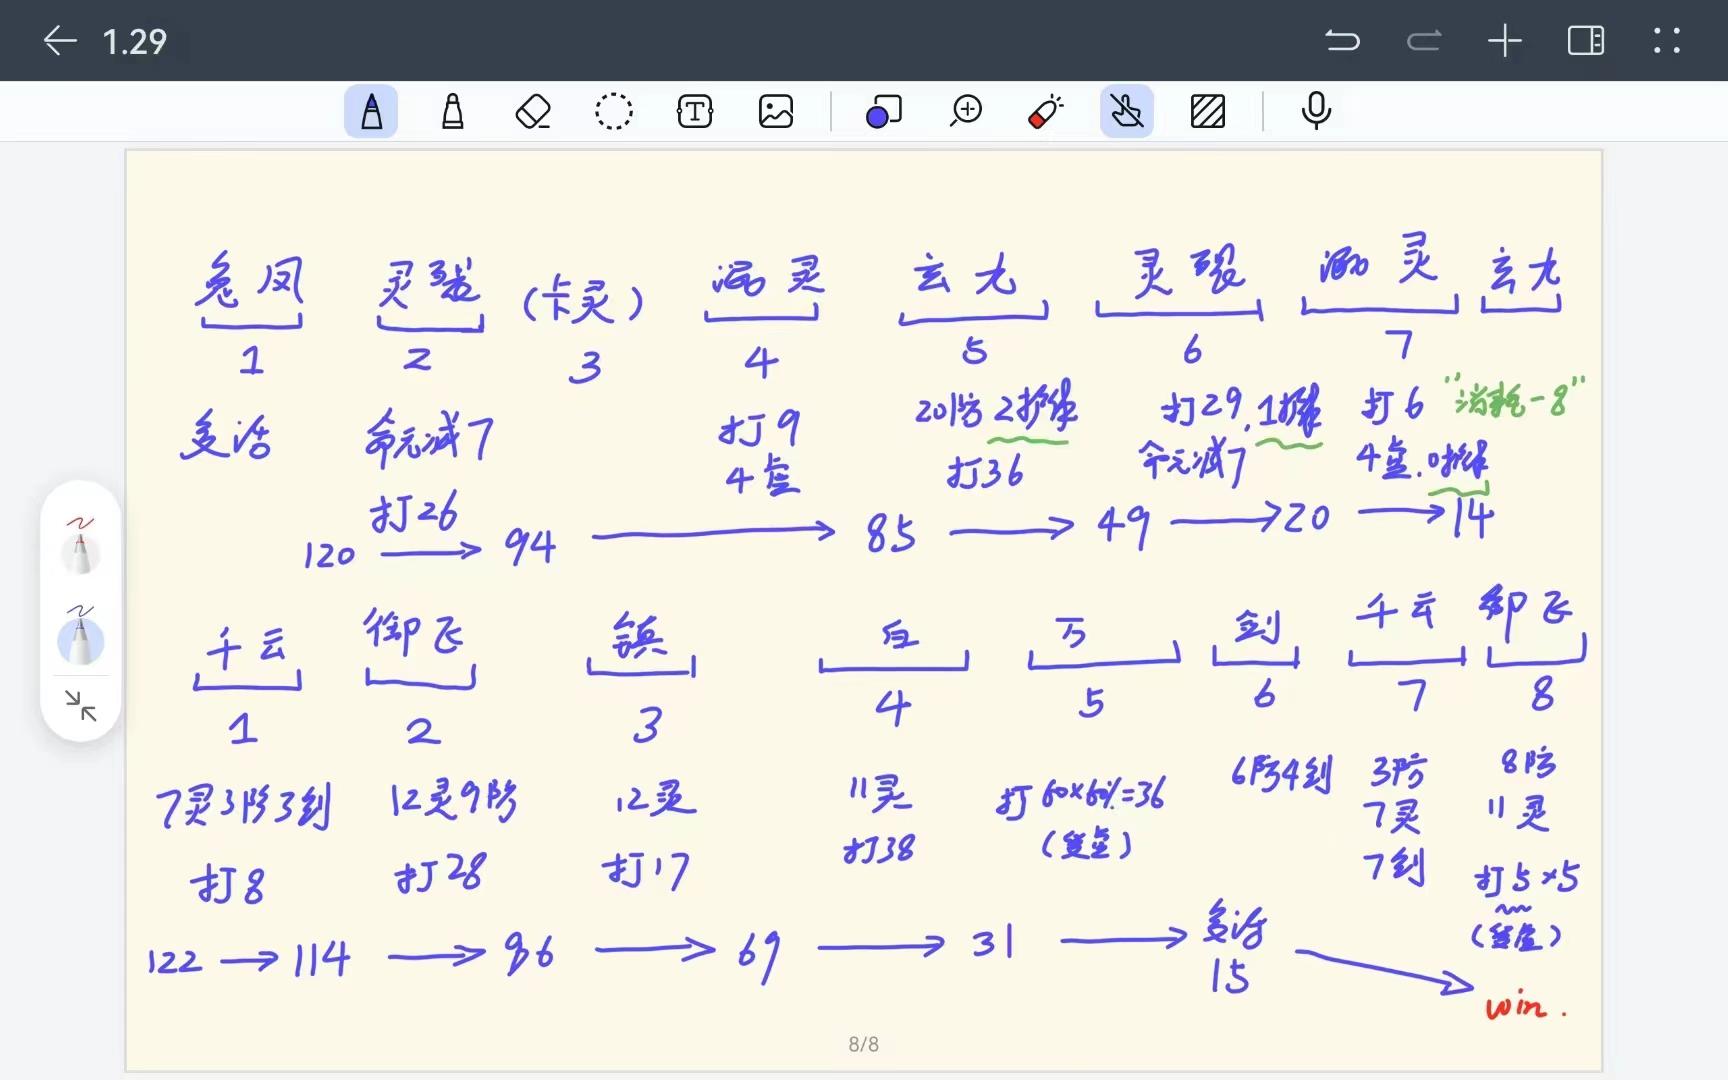 1.29
兔凤 灵裂 (卡灵) 涵灵 玄九 灵裂 涵灵 玄九
1 2 3 4 5 6 7
复活 命元减7 打9 20防 2摧 打29,1摧 打6 "消耗-8"
打26 4虚 打36 命元减7 4虚.0摧
120 → 94 → 85 → 49 → 20 → 14
千云 御飞 镇 白 万 剑 千云 御飞
1 2 3 4 5 6 7 8
7灵3防3剑 12灵9防 12灵 11灵 打60×60%=36 6防4剑 3防 8防
7灵 11灵
打8 打28 打17 打38 7剑 打5×5
122 → 114 → 86 → 69 → 31 → 复活 15
win.
8/8